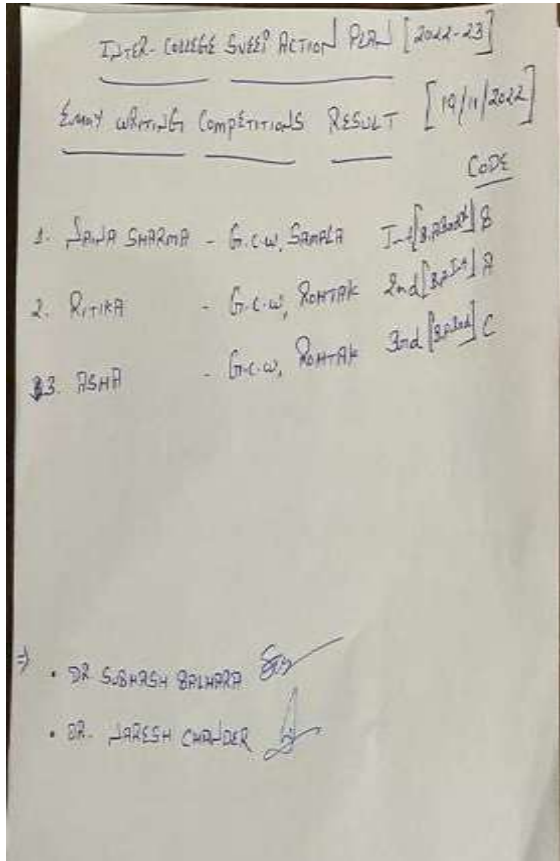 INTER-COLLEGE SVEEP ACTION PLAN [2022-23]
ESSAY WRITING COMPETITIONS RESULT [19/11/2022]
CODE
1. NAINA SHARMA - G.C.W, SAMPLA Ist B
2. RITIKA - G.C.W, ROHTAK 2nd [B.A Ist] A
3. ASHA - G.C.W, ROHTAK 3rd C
⇒ • DR SUBHASH BALHARA
• DR. NARESH CHANDER